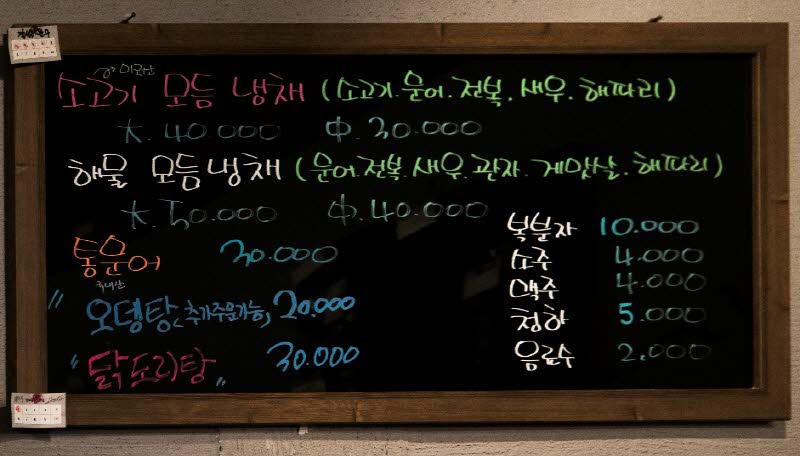 미국산
소고기 모듬 냉채 (소고기.문어.전복.새우.해파리)
大. 40.000 中. 30.000
해물 모듬냉채 (문어.전복.새우.관자.게맛살.해파리)
大. 50.000 中. 40.000
통문어 30.000
국내산
"오뎅탕 (추가주문가능) 20.000
"닭도리탕" 30.000
복분자 10.000
소주 4.000
맥주 4.000
청하 5.000
음료수 2.000